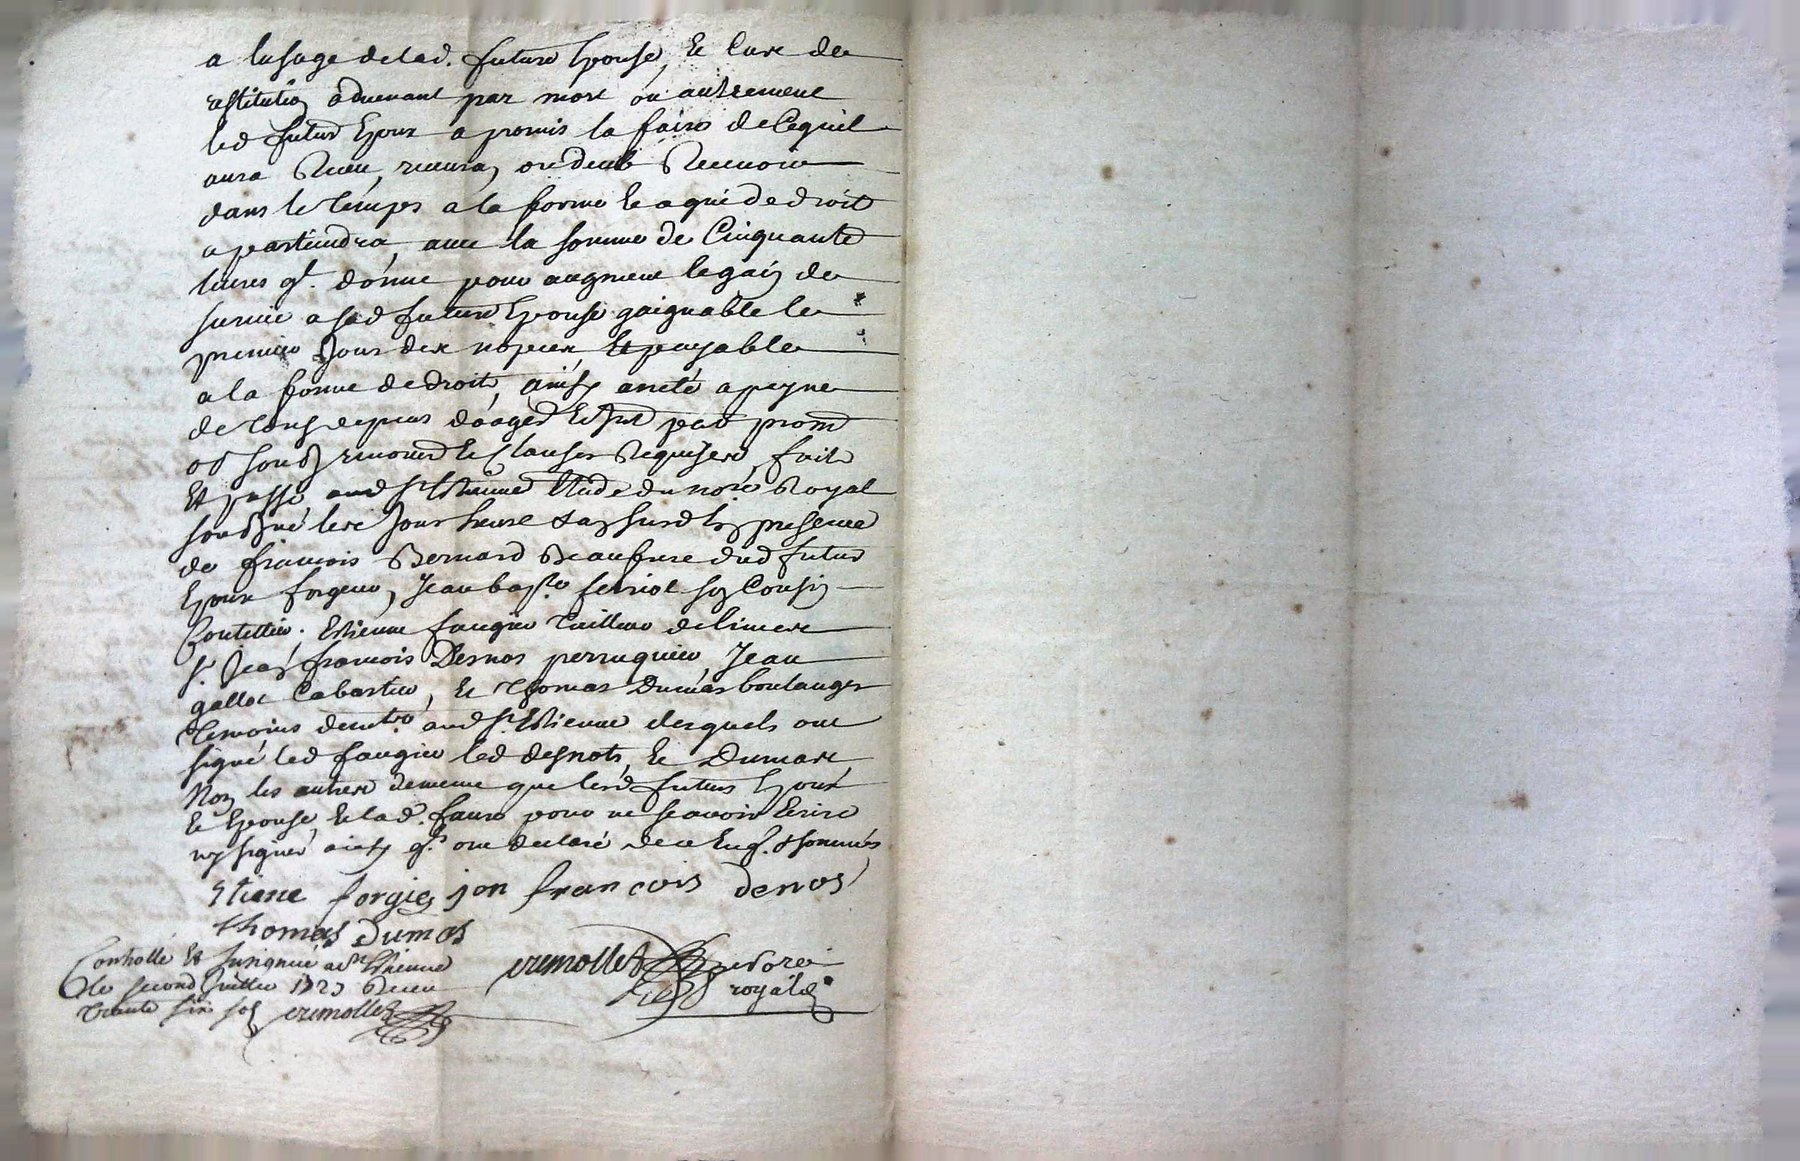 a lusage delad. future Epouse, Et Cas de
restitution advenant par mort ou autrement
led futur Epoux a promis la faire de Cequil
aura Receu, recevra, ou deub Recevoir
dans le temps a la forme Et a qui de droit
apartiendra, avec la somme de Cinquante
livres donne pour augment Et gain de
survie a sad future Epouse gaignable le
premier Jour des nopces, Et payable
a la forme de droit, ainsy a peyne
de tous depens
renoncé Et Clauses Requises, fait
Et passé aud St Estienne Etude du nore Royal
soubsigné les Jour heure En presence
de francois Bernard Beaufrere dud futur
Epoux forgeur, Jean bapte ferriol son Cousin
Coutellier. Estienne faugier Tailleur de limes
sr. Jean francois Desnos perruquier, Jean
gallot Cabartier, Et Thomas Dumas boulanger
Temoins aud St. Estienne desquels ont
signé led faugier led desnots, Et Dumas
Non les autres dememe que lesd futurs Epoux
Et Epouse Et lad. faure pour ne scavoir Ecrire
ny signer ainsy qls ont declaré de ce Enq. & sommés
Etiene forgie jan francois denos
thomas Dumas
Controllé Et Insignué a St Estienne
le second Juillet Receu
Trente six sols
royal